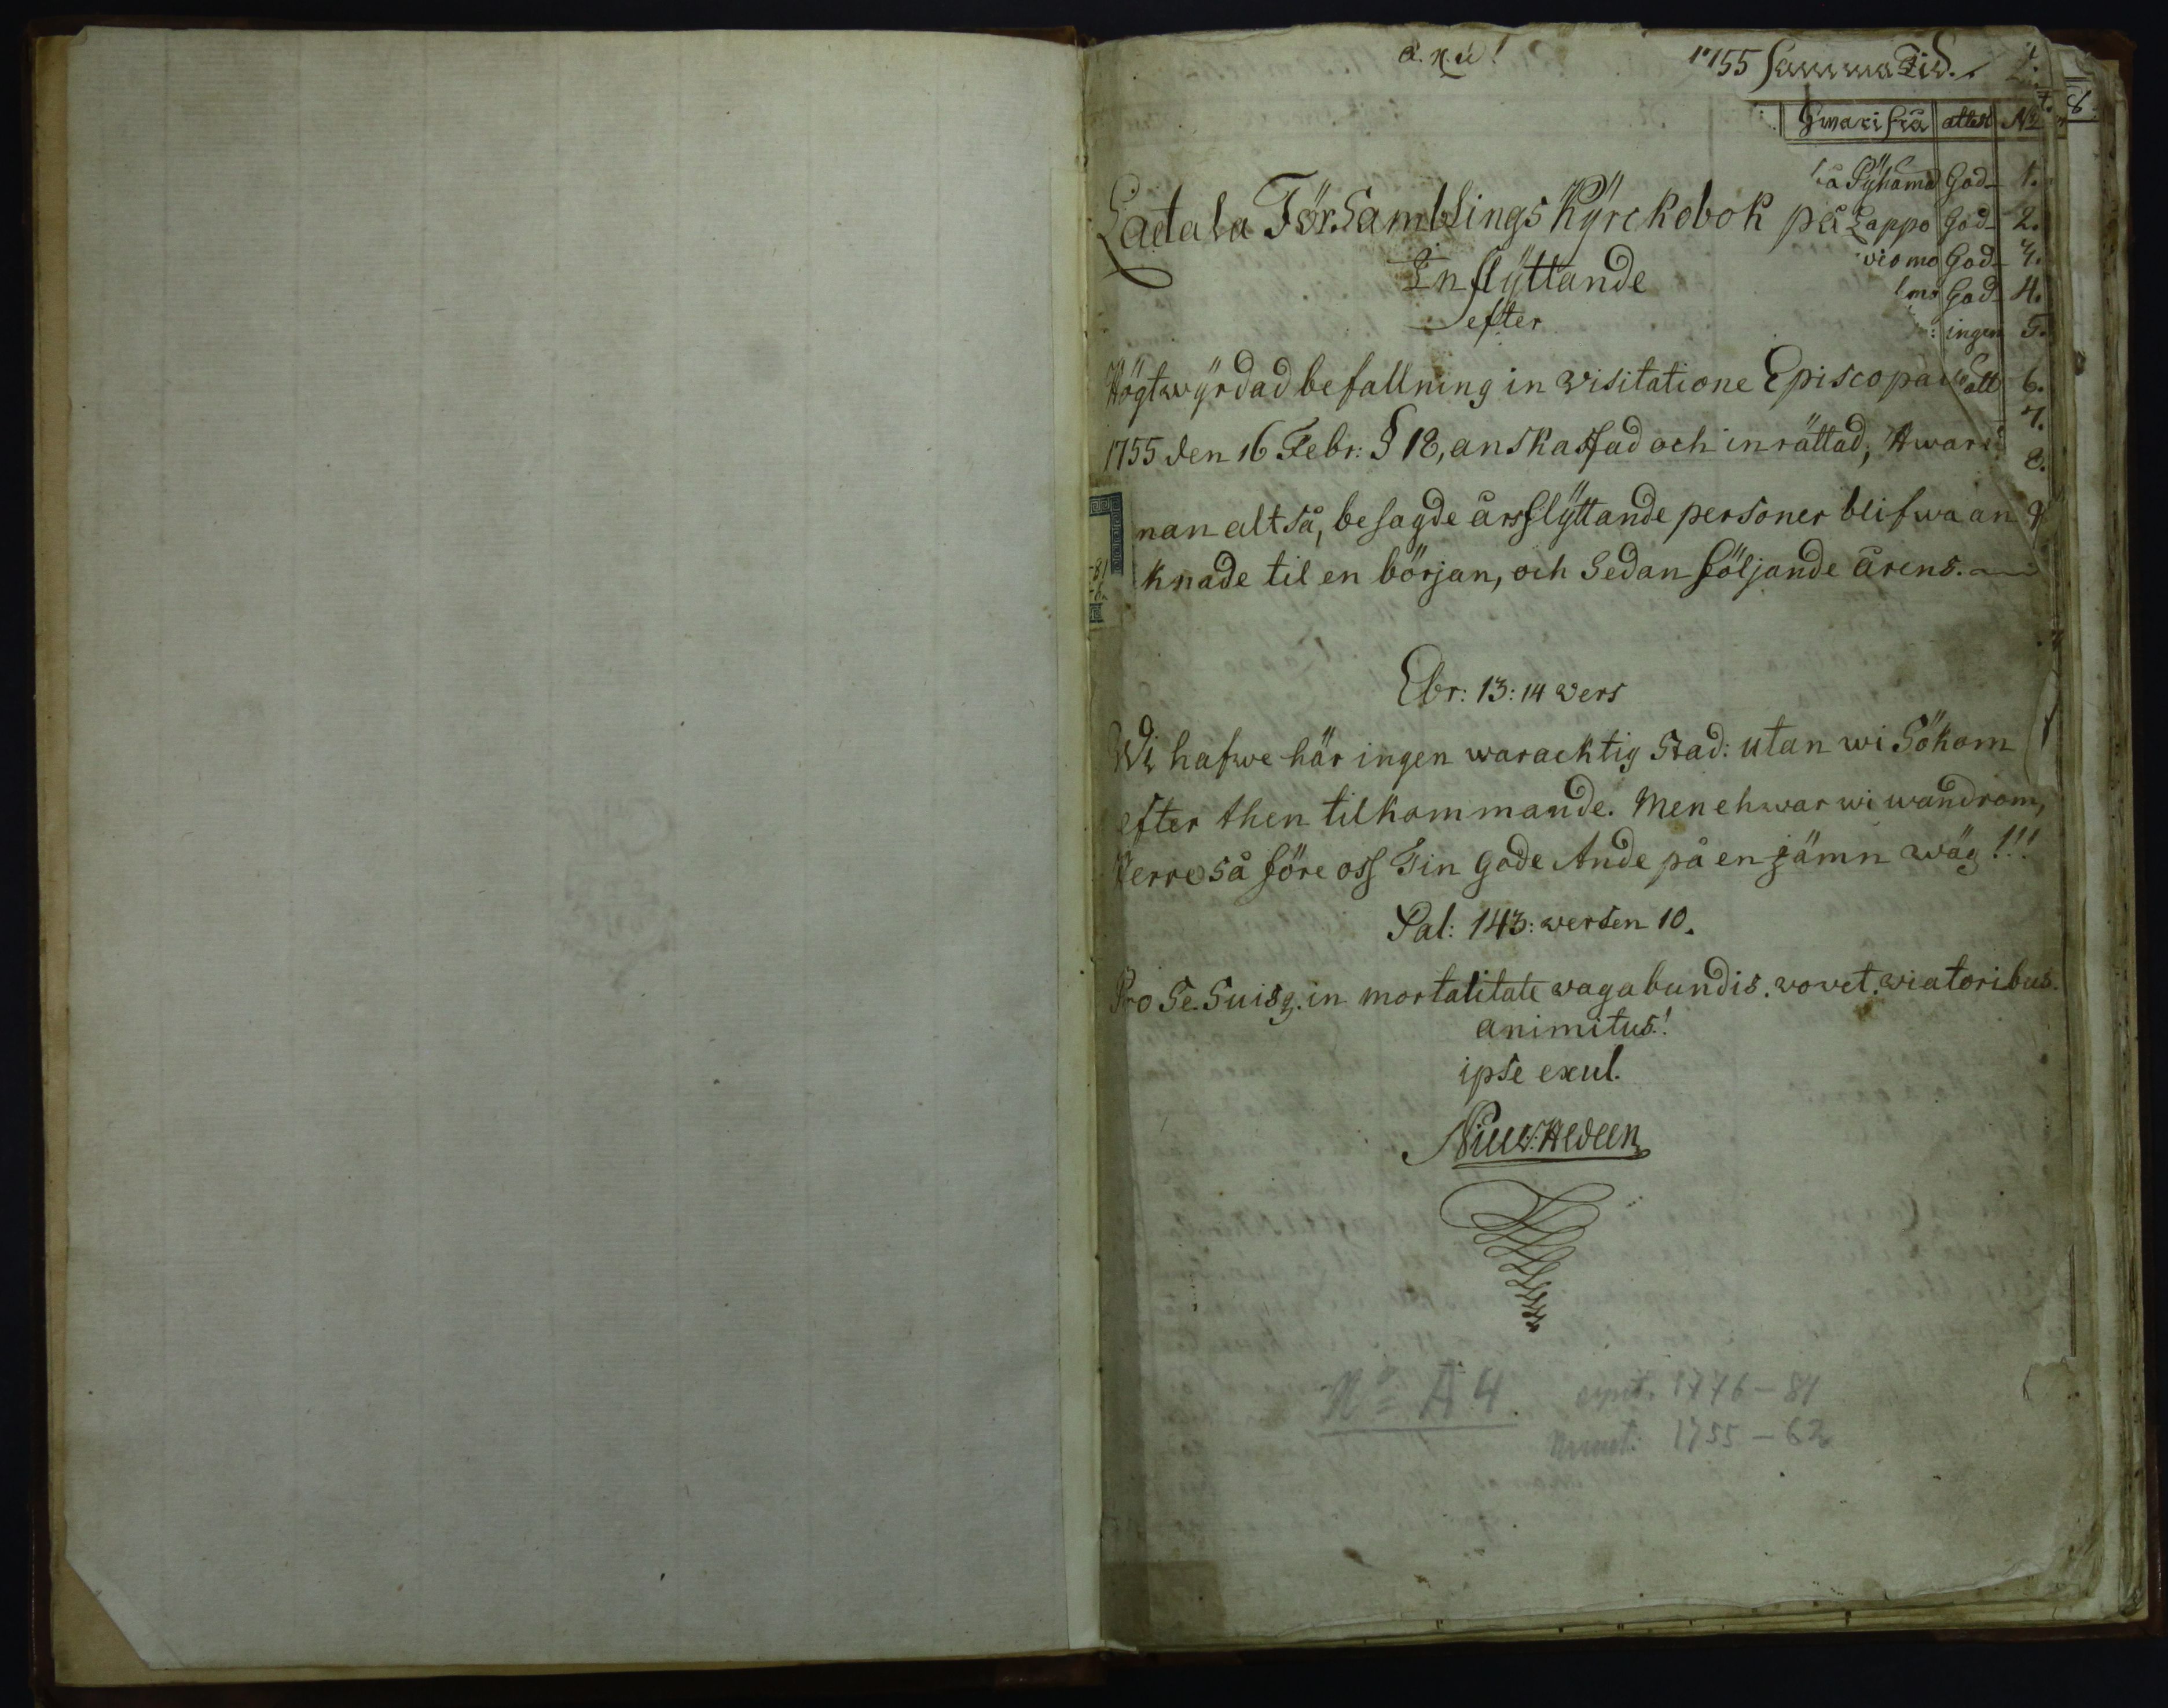 1755 Samma Tid.
Hwarifrå attest No
Pyhämä God- 1.
Lappo God- 2.
God- 
God- 4.
ingen 5.
att 6.
7.
8.
Laetala Församblings Kyrckobok på
Inflÿttande
efter
Högtwÿrdad befallning in visitatione Episcopali
1755 den 16 Febr: § 18, anskaffad och inrättad, Hwari
nan altså, besagde års flÿttande personer blifwa an
knade til en början, och sedan följande årens.
Ebr: 13: 14 vers
Wi hafwe här ingen warachtig stad: utan wi sökom
efter then tilkommande. Men ehwar wi wandrom,
Herre så före oss Tin gode Ande på en jämn wäg!!!
Psal: 143: versen 10.
Pro se suisq. in mortalitate vagabundis. vovet. viatoribus.
animitus!
ipse exul.
Hedeen
No A 4. 1776-81
1755-62